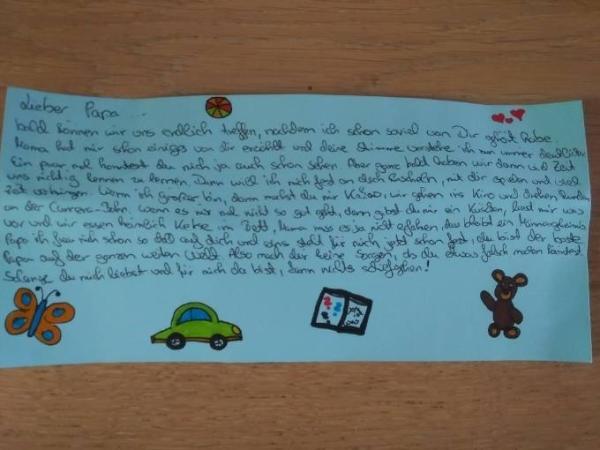 Lieber Papa...
bald können wir uns endlich treffen, nachdem ich schon soviel von Dir gehört habe.
Mama hat mir schon einiges von dir erzählt und deine Stimme verstehe ich nun immer deutlicher
Ein paar mal konntest du mich ja auch schon sehen. Aber ganz bald haben wir dann viel Zeit
uns richtig kennen zu lernen. Dann will ich mich fest an dich kuscheln, mit dir spielen und viel
Zeit verbringen. Wenn ich größer bin, dann machst du mir Kakao, wir gehen ins Kino und drehen Runden
an der Carrera-Bahn. Wenn es mir mal nicht so gut geht, dann gibst du mir ein Küsschen, liest mir was
vor und wir essen heimlich Kekse im Bett, Mama muss es ja nicht erfahren, das bleibt ein Männergeheimnis
Papa ich freu mich schon so doll auf dich und eins steht für mich jetzt schon fest, du bist der beste
Papa auf der ganzen weiten Welt. Also mach dir keine Sorgen, ob du etwas falsch machen könntest.
Solange du mich liebst und für mich da bist, kann nichts schiefgehen!